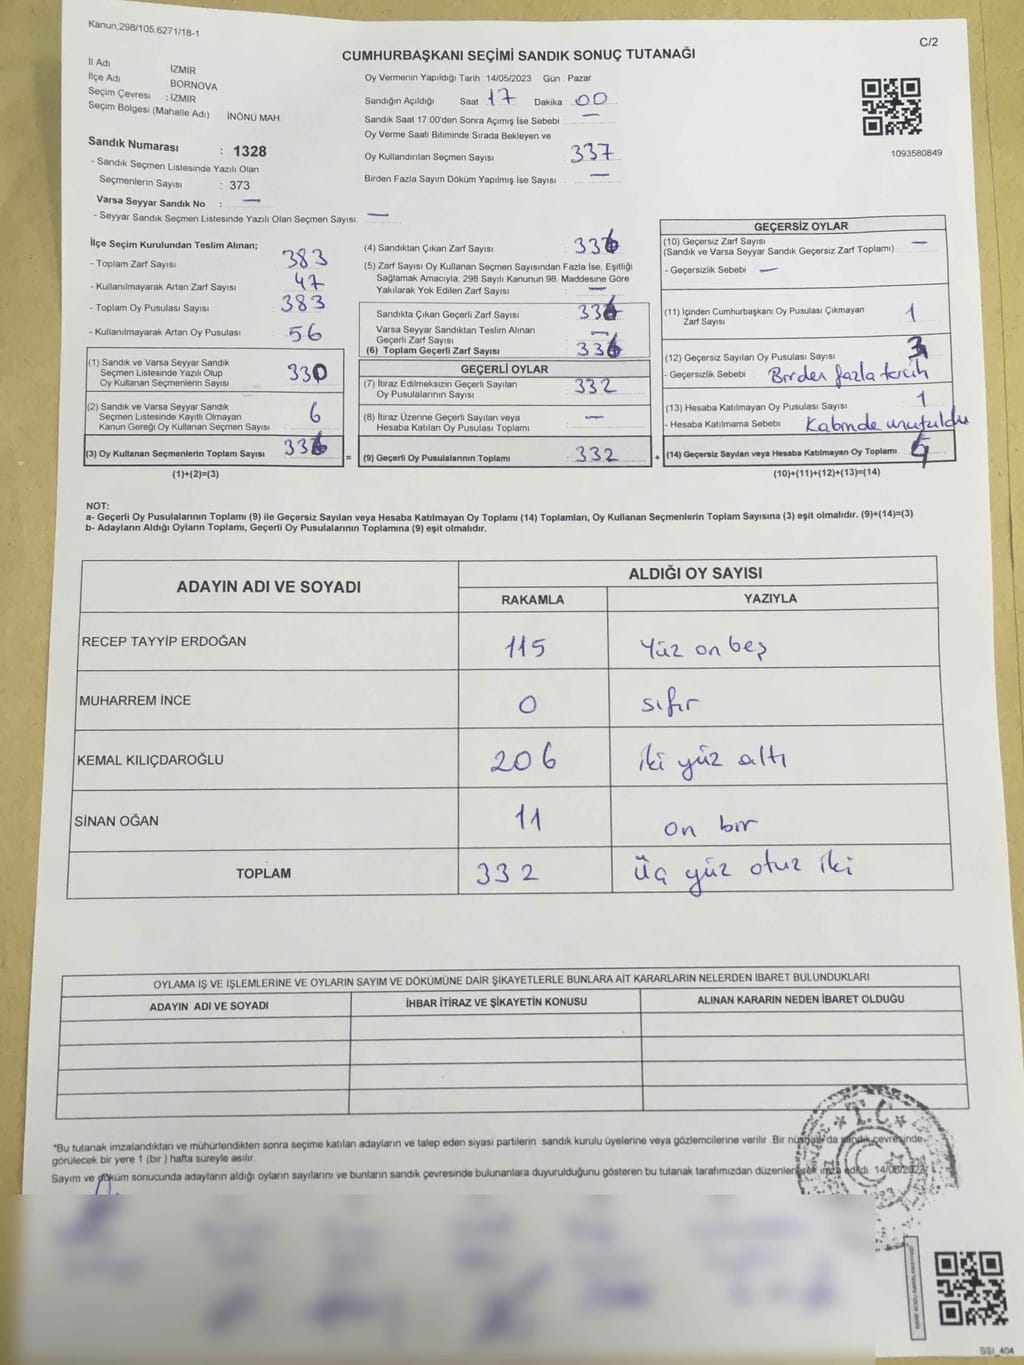 Kanun;298/105,6271/18-1
C/2
CUMHURBAŞKANI SEÇİMİ SANDIK SONUÇ TUTANAĞI
İl Adı İZMİR
İlçe Adı BORNOVA
Seçim Çevresi : İZMİR
Seçim Bölgesi (Mahalle Adı) İNÖNÜ MAH
Sandık Numarası : 1328
- Sandık Seçmen Listesinde Yazılı Olan
Seçmenlerin Sayısı : 373
Varsa Seyyar Sandık No : —
- Seyyar Sandık Seçmen Listesinde Yazılı Olan Seçmen Sayısı: —
Oy Vermenin Yapıldığı Tarih : 14/05/2023 Gün : Pazar
Sandığın Açıldığı Saat 17 Dakika 00
Sandık Saat 17:00'den Sonra Açımış İse Sebebi : —
Oy Verme Saati Bitiminde Sırada Bekleyen ve
Oy Kullandırılan Seçmen Sayısı : 337
Birden Fazla Sayım Döküm Yapılmış İse Sayısı : —
1093580849
İlçe Seçim Kurulundan Teslim Alınan;
- Toplam Zarf Sayısı : 383
- Kullanılmayarak Artan Zarf Sayısı : 47
- Toplam Oy Pusulası Sayısı : 383
- Kullanılmayarak Artan Oy Pusulası : 56
(1) Sandık ve Varsa Seyyar Sandık
Seçmen Listesinde Yazılı Olup
Oy Kullanan Seçmenlerin Sayısı : 330
(2) Sandık ve Varsa Seyyar Sandık
Seçmen Listesinde Kayıtlı Olmayan
Kanun Gereği Oy Kullanan Seçmen Sayısı : 6
(3) Oy Kullanan Seçmenlerin Toplam Sayısı : 336
(1)+(2)=(3)
(4) Sandıktan Çıkan Zarf Sayısı : 336
(5) Zarf Sayısı Oy Kullanan Seçmen Sayısından Fazla İse, Eşitliği
Sağlamak Amacıyla, 298 Sayılı Kanunun 98. Maddesine Göre
Yakılarak Yok Edilen Zarf Sayısı : —
Sandıkta Çıkan Geçerli Zarf Sayısı : 336
Varsa Seyyar Sandıktan Teslim Alınan
Geçerli Zarf Sayısı : —
(6) Toplam Geçerli Zarf Sayısı : 336
GEÇERLİ OYLAR
(7) İtiraz Edilmeksizin Geçerli Sayılan
Oy Pusulalarının Sayısı : 332
(8) İtiraz Üzerine Geçerli Sayılan veya
Hesaba Katılan Oy Pusulası Toplamı : —
= (9) Geçerli Oy Pusulalarının Toplamı : 332 +
GEÇERSİZ OYLAR
(10) Geçersiz Zarf Sayısı
(Sandık ve Varsa Seyyar Sandık Geçersiz Zarf Toplamı) : —
- Geçersizlik Sebebi : —
(11) İçinden Cumhurbaşkanı Oy Pusulası Çıkmayan
Zarf Sayısı : 1
(12) Geçersiz Sayılan Oy Pusulası Sayısı
- Geçersizlik Sebebi : Birden fazla tercih
(13) Hesaba Katılmayan Oy Pusulası Sayısı : 1
- Hesaba Katılmama Sebebi : Kabinde unutuldu
(14) Geçersiz Sayılan veya Hesaba Katılmayan Oy Toplamı :
(10)+(11)+(12)+(13)=(14)
NOT:
a- Geçerli Oy Pusulalarının Toplamı (9) ile Geçersiz Sayılan veya Hesaba Katılmayan Oy Toplamı (14) Toplamları, Oy Kullanan Seçmenlerin Toplam Sayısına (3) eşit olmalıdır. (9)+(14)=(3)
b- Adayların Aldığı Oyların Toplamı, Geçerli Oy Pusulalarının Toplamına (9) eşit olmalıdır.
ADAYIN ADI VE SOYADI ALDIĞI OY SAYISI
RAKAMLA YAZIYLA
RECEP TAYYİP ERDOĞAN 115 Yüz on beş
MUHARREM İNCE 0 sıfır
KEMAL KILIÇDAROĞLU 206 iki yüz altı
SİNAN OĞAN 11 on bir
TOPLAM 332 üç yüz otuz iki
OYLAMA İŞ VE İŞLEMLERİNE VE OYLARIN SAYIM VE DÖKÜMÜNE DAİR ŞİKAYETLERLE BUNLARA AİT KARARLARIN NELERDEN İBARET BULUNDUKLARI
ADAYIN ADI VE SOYADI İHBAR İTİRAZ VE ŞİKAYETİN KONUSU ALINAN KARARIN NEDEN İBARET OLDUĞU
*Bu tutanak imzalandıktan ve mühürlendikten sonra seçime katılan adayların ve talep eden siyasi partilerin sandık kurulu üyelerine veya gözlemcilerine verilir. Bir nüshası da sandık çevresinde
görülecek bir yere 1 (bir ) hafta süreyle asılır.
Sayım ve döküm sonucunda adayların aldığı oyların sayılarını ve bunların sandık çevresinde bulunanlara duyurulduğunu gösteren bu tutanak tarafımızdan düzenlenerek imza edildi. 14/05/2023
T.C
SSI_404